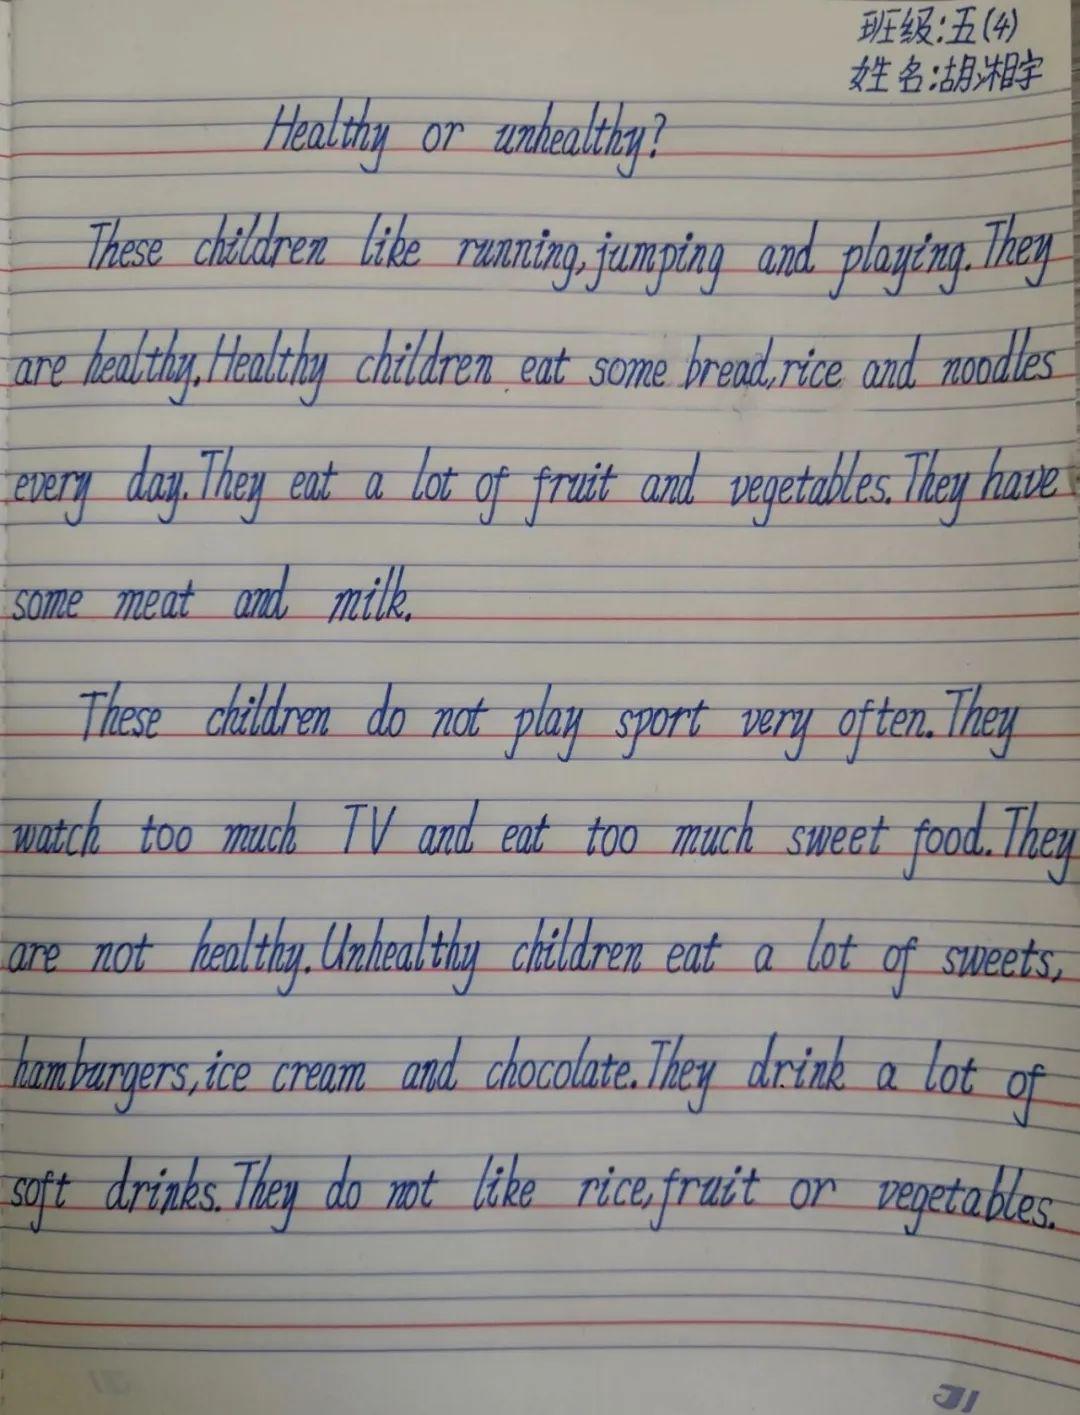 班级:五(4)
姓名:胡湘宇
Healthy or unhealthy?
These children like running,jumping and playing.They
are healthy.Healthy children eat some bread,rice and noodles
every day.They eat a lot of fruit and vegetables.They have
some meat and milk.
These children do not play sport very often.They
watch too much TV and eat too much sweet food.They
are not healthy.Unhealthy children eat a lot of sweets,
hamburgers,ice cream and chocolate.They drink a lot of
soft drinks.They do not like rice,fruit or vegetables.